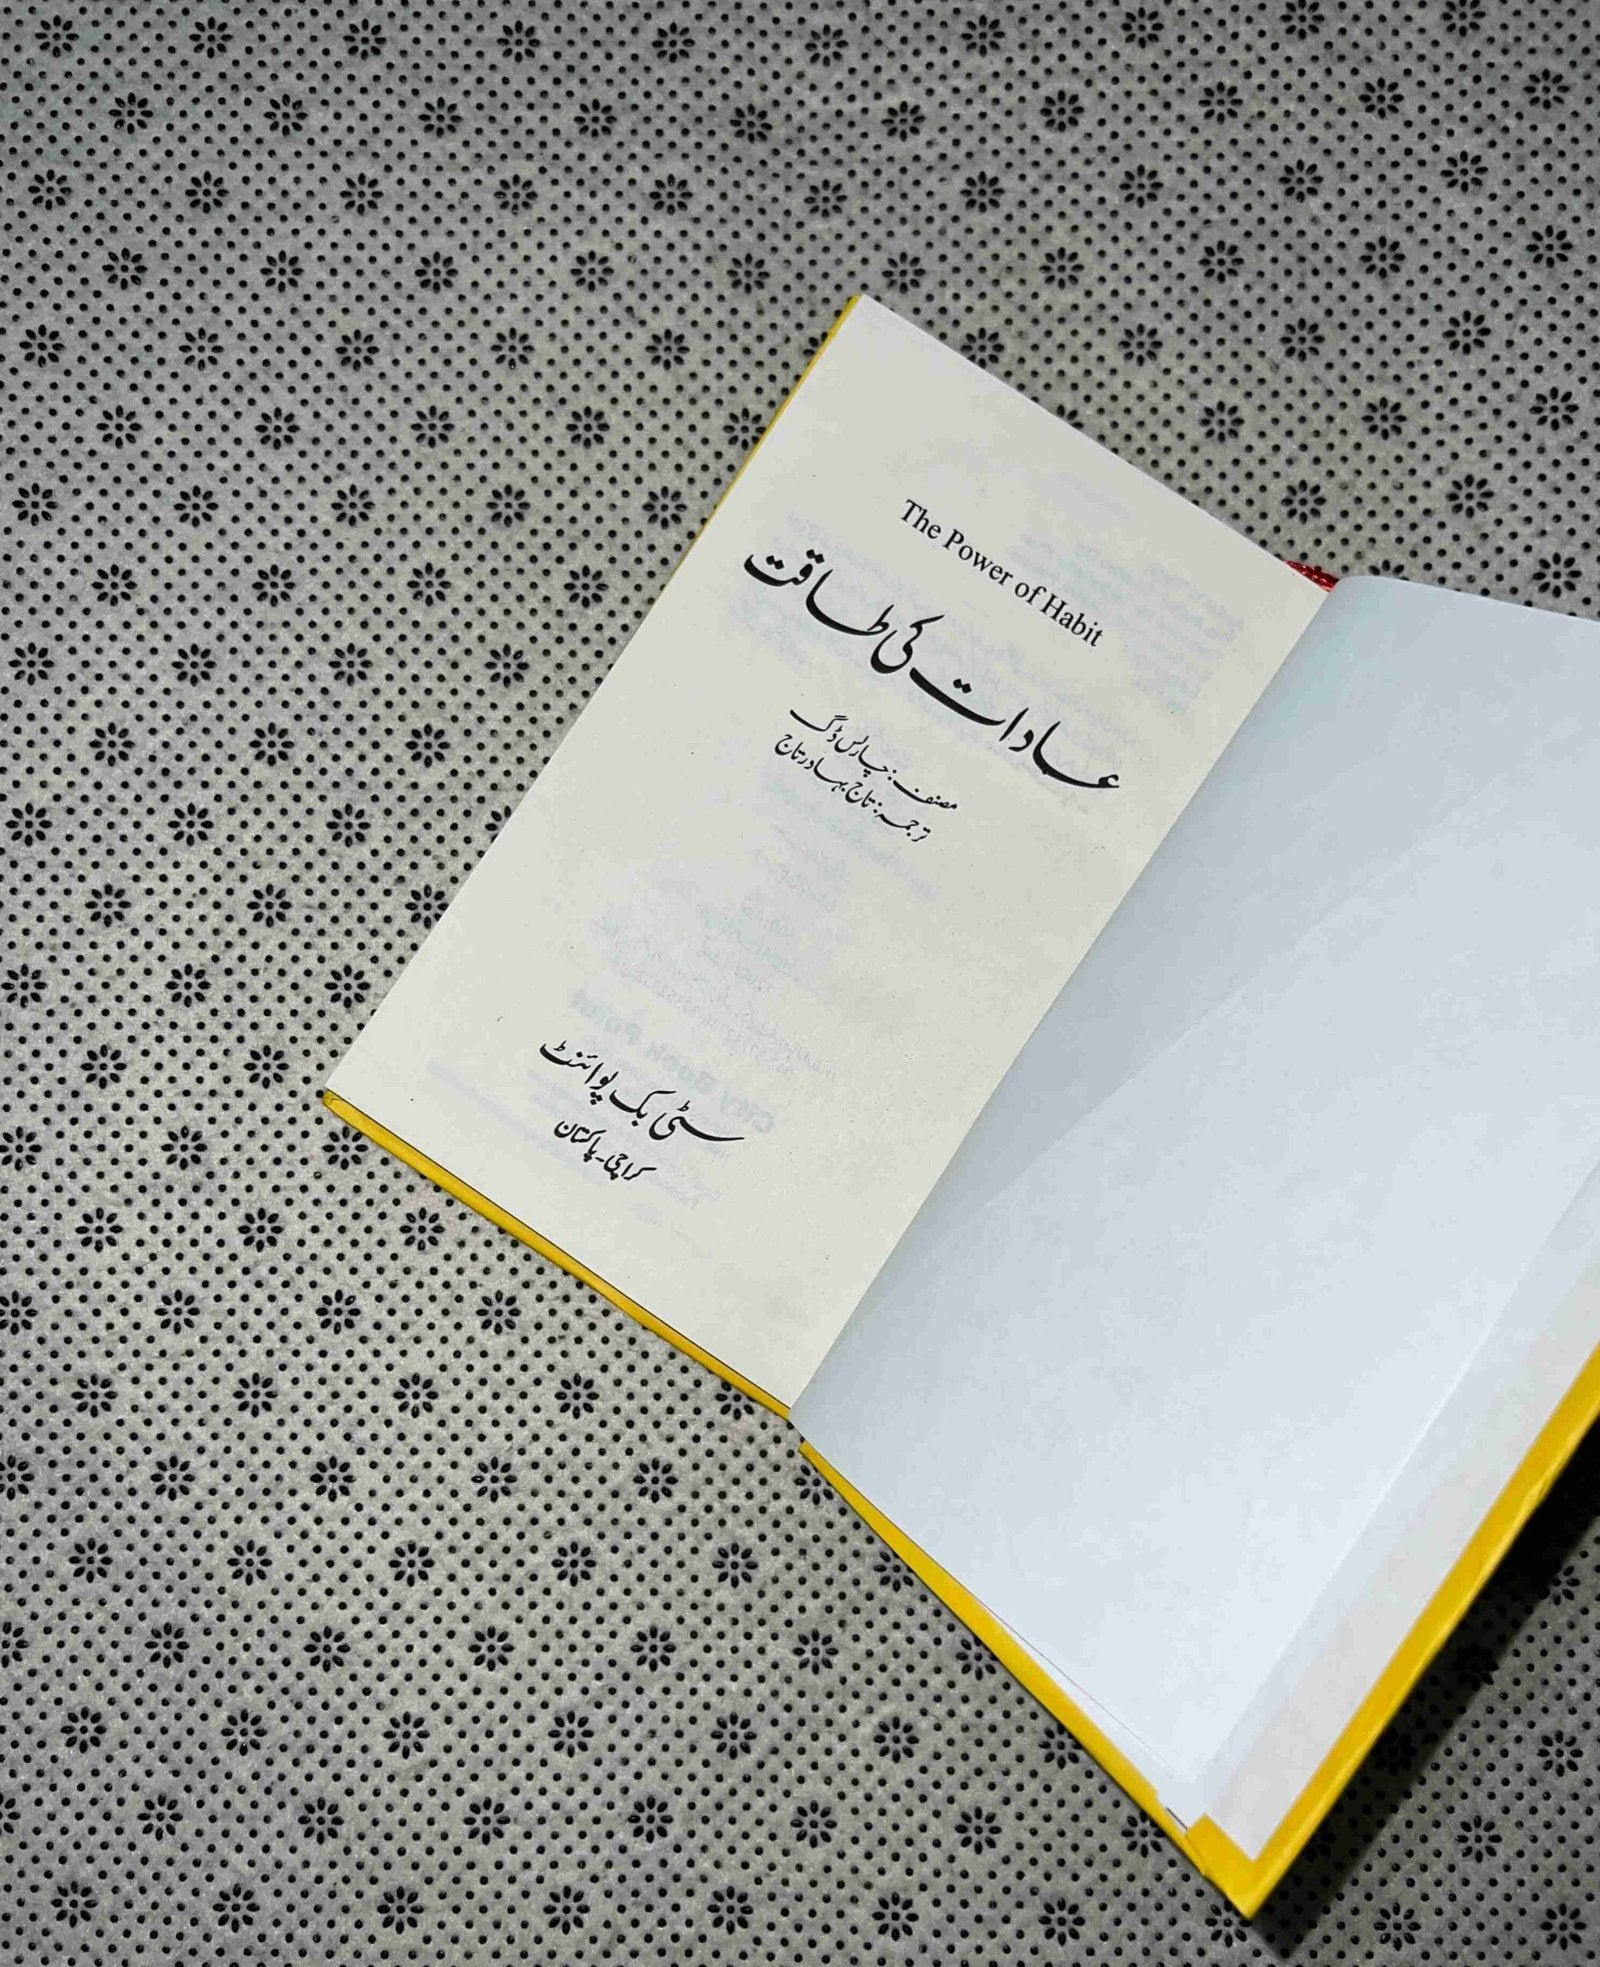 The Power of Habit
عادات کی طاقت
مصنف: چارلس ڈگ
ترجمہ: تاج بہادر تاج
سٹی بک پوائنٹ
کراچی۔ پاکستان